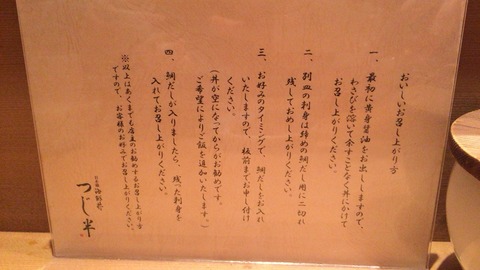 おいしいお召し上がり方
一、最初に黄身醤油をお出ししますので、
わさびを溶いて余すことなく丼にかけて
お召し上がりください。
二、別皿の刺身は締めの鯛だし用に二切れ
残しておめし上がりください。
三、お好みのタイミングで、鯛だしをお入れ
いたしますので、板前までお申し付け
ください。
(丼が空になってからがお勧めです。
ご希望によりご飯を追加いたします。)
四、鯛だしが入りましたら、残った刺身を
入れてお召し上がりください。
※以上はあくまでも店主のお勧めするお召し上がり方
ですので、お客様のお好みでお召し上がりください。
つじ半